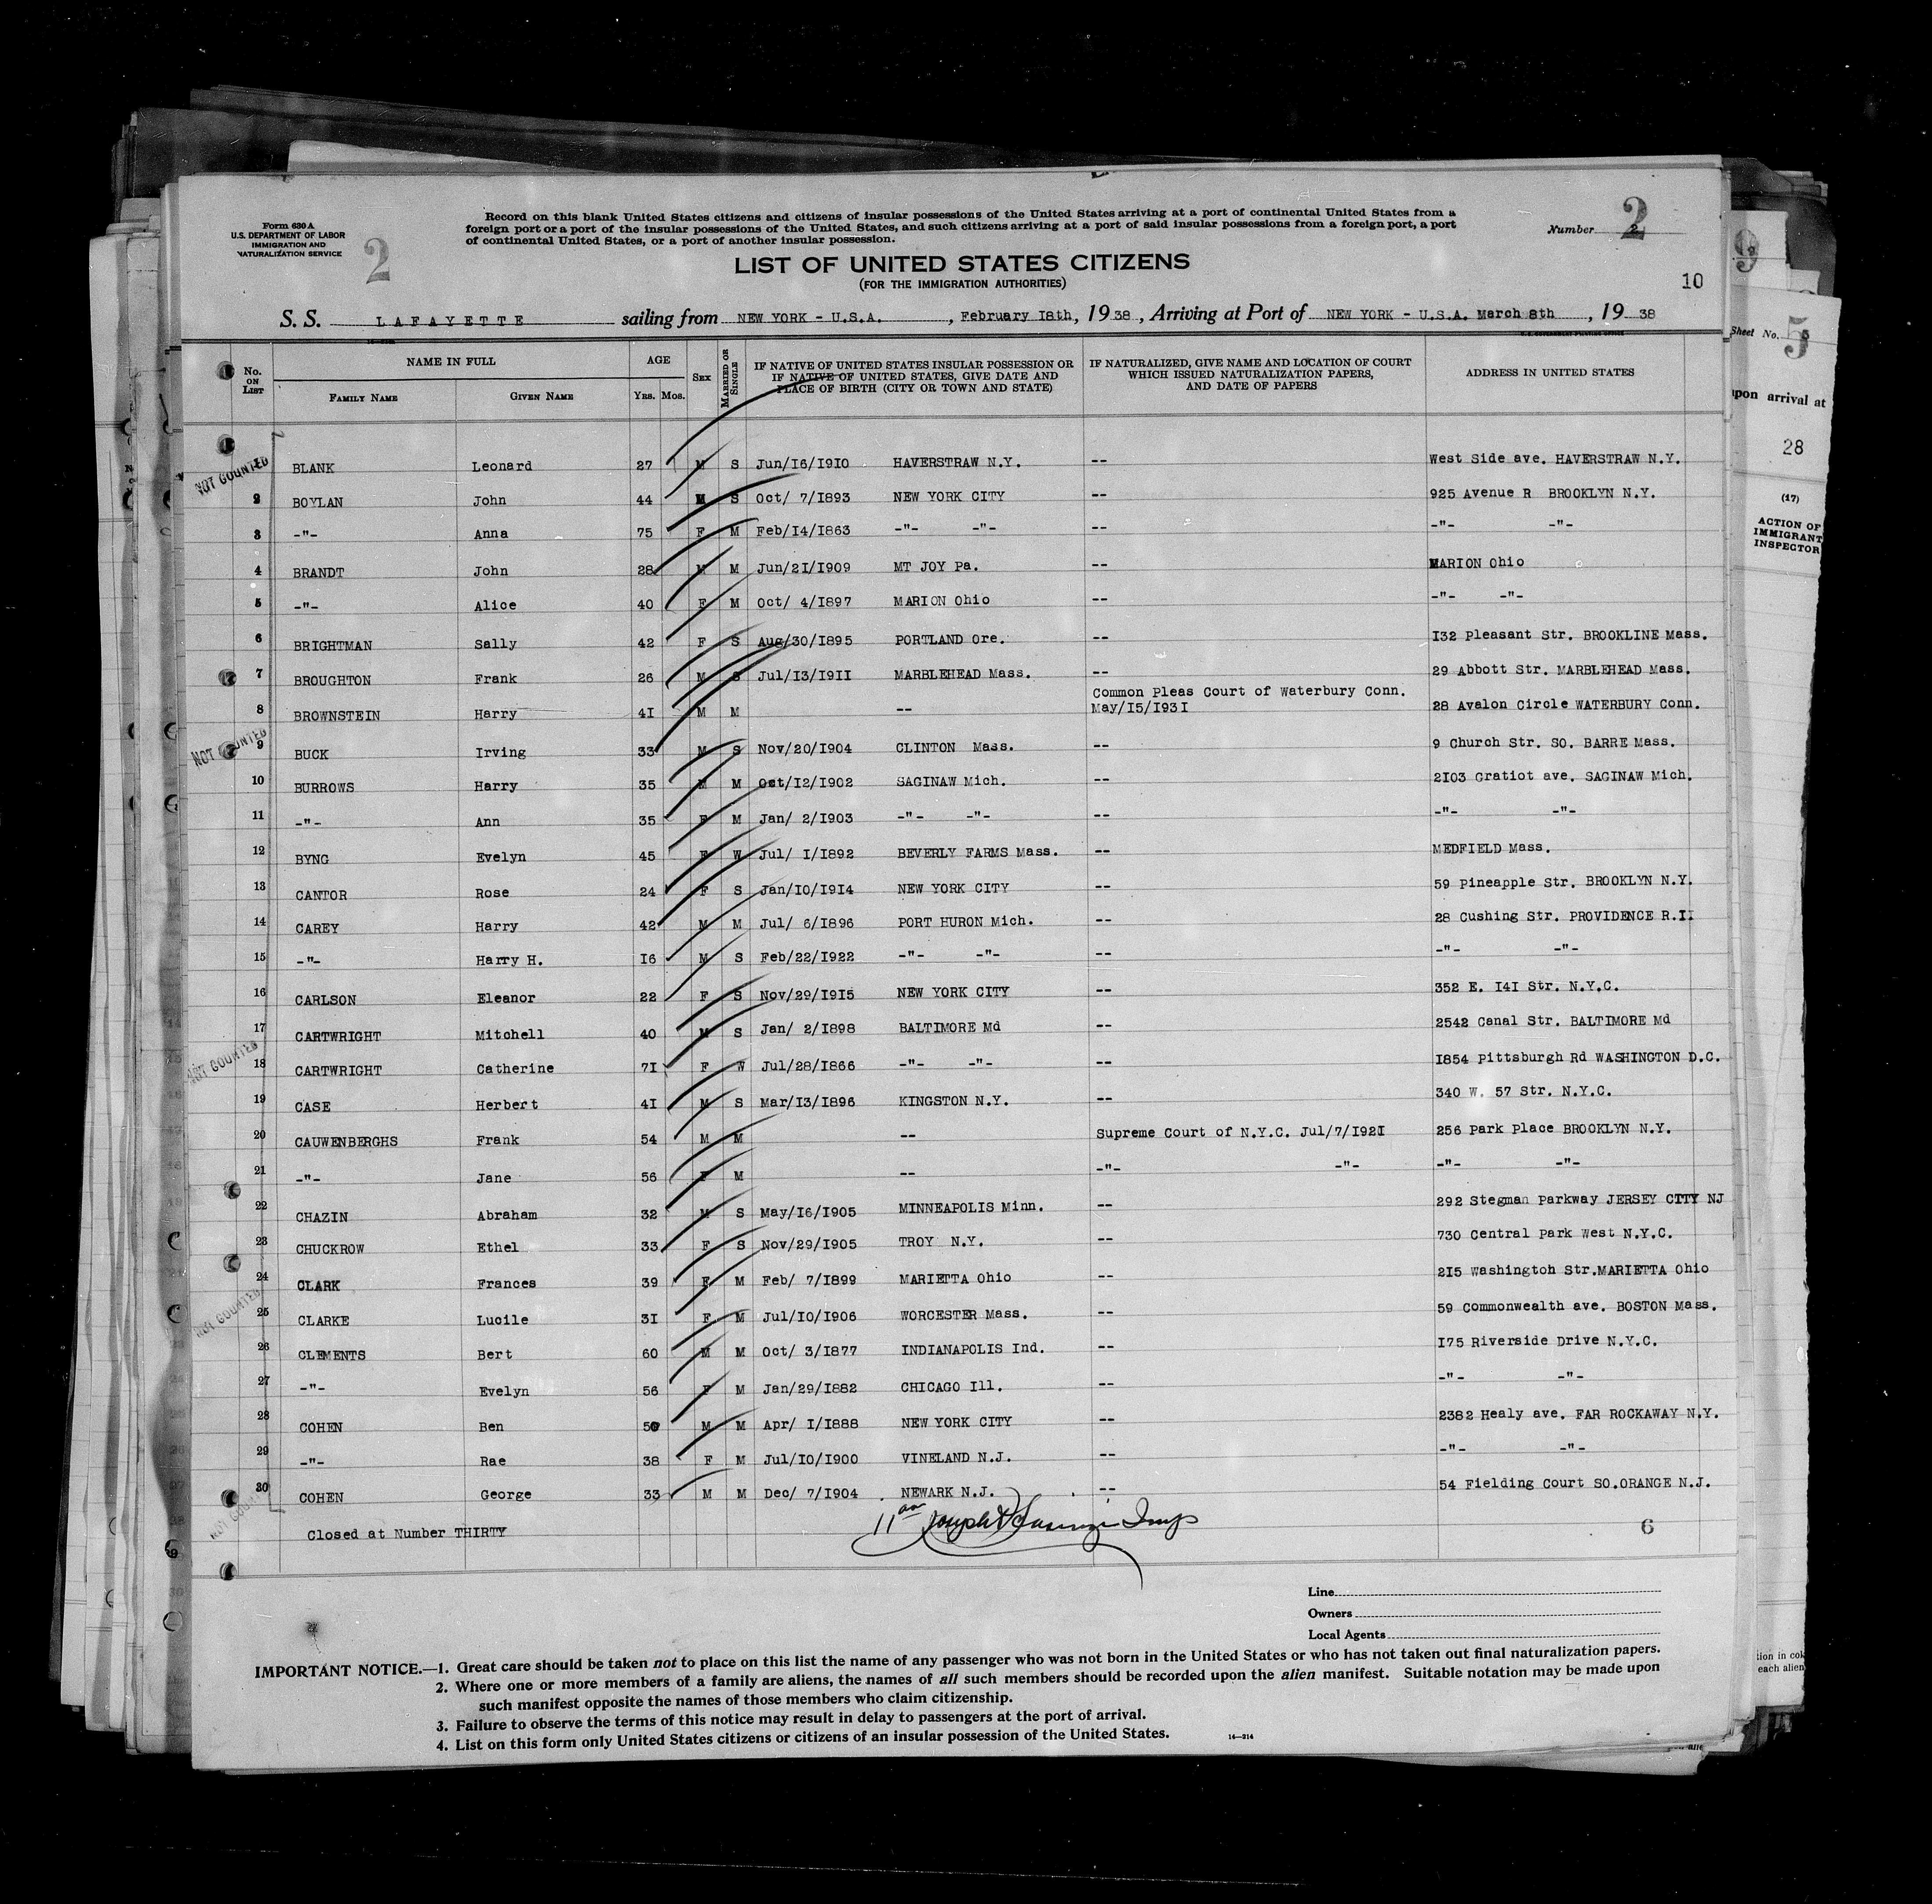 Form 630 A
U.S. DEPARTMENT OF LABOR
IMMIGRATION AND
NATURALIZATION SERVICE
2
Record on this blank United States citizens and citizens of insular possessions of the United States arriving at a port of continental United States from a
foreign port or a port of the insular possessions of the United States, and such citizens arriving at a port of said insular possessions from a foreign port, a port
of continental United States, or a port of another insular possession.
Number 2
2
LIST OF UNITED STATES CITIZENS
(FOR THE IMMIGRATION AUTHORITIES)
10
S. S. LAFAYETTE sailing from NEW YORK - U.S.A. , February I8th, 19 38, Arriving at Port of NEW YORK - U.S.A. March 8th , 19 38
No. ON LIST NAME IN FULL FAMILY NAME GIVEN NAME AGE YRS. MOS. SEX MARRIED OR SINGLE IF NATIVE OF UNITED STATES INSULAR POSSESSION OR IF NATIVE OF UNITED STATES, GIVE DATE AND PLACE OF BIRTH (CITY OR TOWN AND STATE) IF NATURALIZED, GIVE NAME AND LOCATION OF COURT WHICH ISSUED NATURALIZATION PAPERS, AND DATE OF PAPERS ADDRESS IN UNITED STATES
NOT COUNTED
BLANK Leonard 27 M S Jun/I6/I9I0 HAVERSTRAW N.Y. -- West Side ave. HAVERSTRAW N.Y.
2 BOYLAN John 44 M S Oct/ 7/I893 NEW YORK CITY -- 925 Avenue R BROOKLYN N.Y.
3 -"- Anna 75 F M Feb/I4/I863 -"- -"- -- -"- -"-
4 BRANDT John 28 M M Jun/2I/I909 MT JOY Pa. -- MARION Ohio
5 -"- Alice 40 F M Oct/ 4/I897 MARION Ohio -- -"- -"-
6 BRIGHTMAN Sally 42 F S Aug/30/I895 PORTLAND Ore. -- I32 Pleasant Str. BROOKLINE Mass.
7 BROUGHTON Frank 26 M S Jul/I3/I9II MARBLEHEAD Mass. -- 29 Abbott Str. MARBLEHEAD Mass.
8 BROWNSTEIN Harry 4I M M -- Common Pleas Court of Waterbury Conn. May/I5/I93I 28 Avalon Circle WATERBURY Conn.
NOT COUNTED
9 BUCK Irving 33 M S Nov/20/I904 CLINTON Mass. -- 9 Church Str. SO. BARRE Mass.
10 BURROWS Harry 35 M M Oct/I2/I902 SAGINAW Mich. -- 2I03 Gratiot ave. SAGINAW Mich.
11 -"- Ann 35 F M Jan/ 2/I903 -"- -"- -- -"- -"-
12 BYNG Evelyn 45 F W Jul/ I/I892 BEVERLY FARMS Mass. -- MEDFIELD Mass.
13 CANTOR Rose 24 F S Jan/I0/I9I4 NEW YORK CITY -- 59 Pineapple Str. BROOKLYN N.Y.
14 CAREY Harry 42 M M Jul/ 6/I896 PORT HURON Mich. -- 28 Cushing Str. PROVIDENCE R.I.
15 -"- Harry H. I6 M S Feb/22/I922 -"- -"- -- -"- -"-
16 CARLSON Eleanor 22 F S Nov/29/I9I5 NEW YORK CITY -- 352 E. I4I Str. N.Y.C.
17 CARTWRIGHT Mitchell 40 M S Jan/ 2/I898 BALTIMORE Md -- 2542 Canal Str. BALTIMORE Md
NOT COUNTED
18 CARTWRIGHT Catherine 7I F W Jul/28/I866 -"- -"- -- I854 Pittsburgh Rd WASHINGTON D.C.
19 CASE Herbert 4I M S Mar/I3/I896 KINGSTON N.Y. -- 340 W. 57 Str. N.Y.C.
20 CAUWENBERGHS Frank 54 M M -- Supreme Court of N.Y.C. Jul/7/I92I 256 Park Place BROOKLYN N.Y.
21 -"- Jane 56 F M -- -"- -"- -"- -"-
22 CHAZIN Abraham 32 M S May/I6/I905 MINNEAPOLIS Minn. -- 292 Stegman Parkway JERSEY CITY NJ
23 CHUCKROW Ethel 33 F S Nov/29/I905 TROY N.Y. -- 730 Central Park West N.Y.C.
24 CLARK Frances 39 F M Feb/ 7/I899 MARIETTA Ohio -- 2I5 Washingtoh Str.MARIETTA Ohio
NOT COUNTED
25 CLARKE Lucile 3I F M Jul/I0/I906 WORCESTER Mass. -- 59 Commonwealth ave. BOSTON Mass.
26 CLEMENTS Bert 60 M M Oct/ 3/I877 INDIANAPOLIS Ind. -- I75 Riverside Drive N.Y.C.
27 -"- Evelyn 56 F M Jan/29/I882 CHICAGO Ill. -- -"- -"-
28 COHEN Ben 50 M M Apr/ I/I888 NEW YORK CITY -- 2382 Healy ave. FAR ROCKAWAY N.Y.
29 -"- Rae 38 F M Jul/I0/I900 VINELAND N.J. -- -"- -"-
30 COHEN George 33 M M Dec/ 7/I904 NEWARK N.J. -- 54 Fielding Court SO.ORANGE N.J.
Closed at Number THIRTY
6
Line
Owners
Local Agents
IMPORTANT NOTICE.—1. Great care should be taken not to place on this list the name of any passenger who was not born in the United States or who has not taken out final naturalization papers.
2. Where one or more members of a family are aliens, the names of all such members should be recorded upon the alien manifest. Suitable notation may be made upon
such manifest opposite the names of those members who claim citizenship.
3. Failure to observe the terms of this notice may result in delay to passengers at the port of arrival.
4. List on this form only United States citizens or citizens of an insular possession of the United States.
16—214
9
Sheet No. 5
upon arrival at
28
(17)
ACTION OF
IMMIGRANT
INSPECTOR
each alien